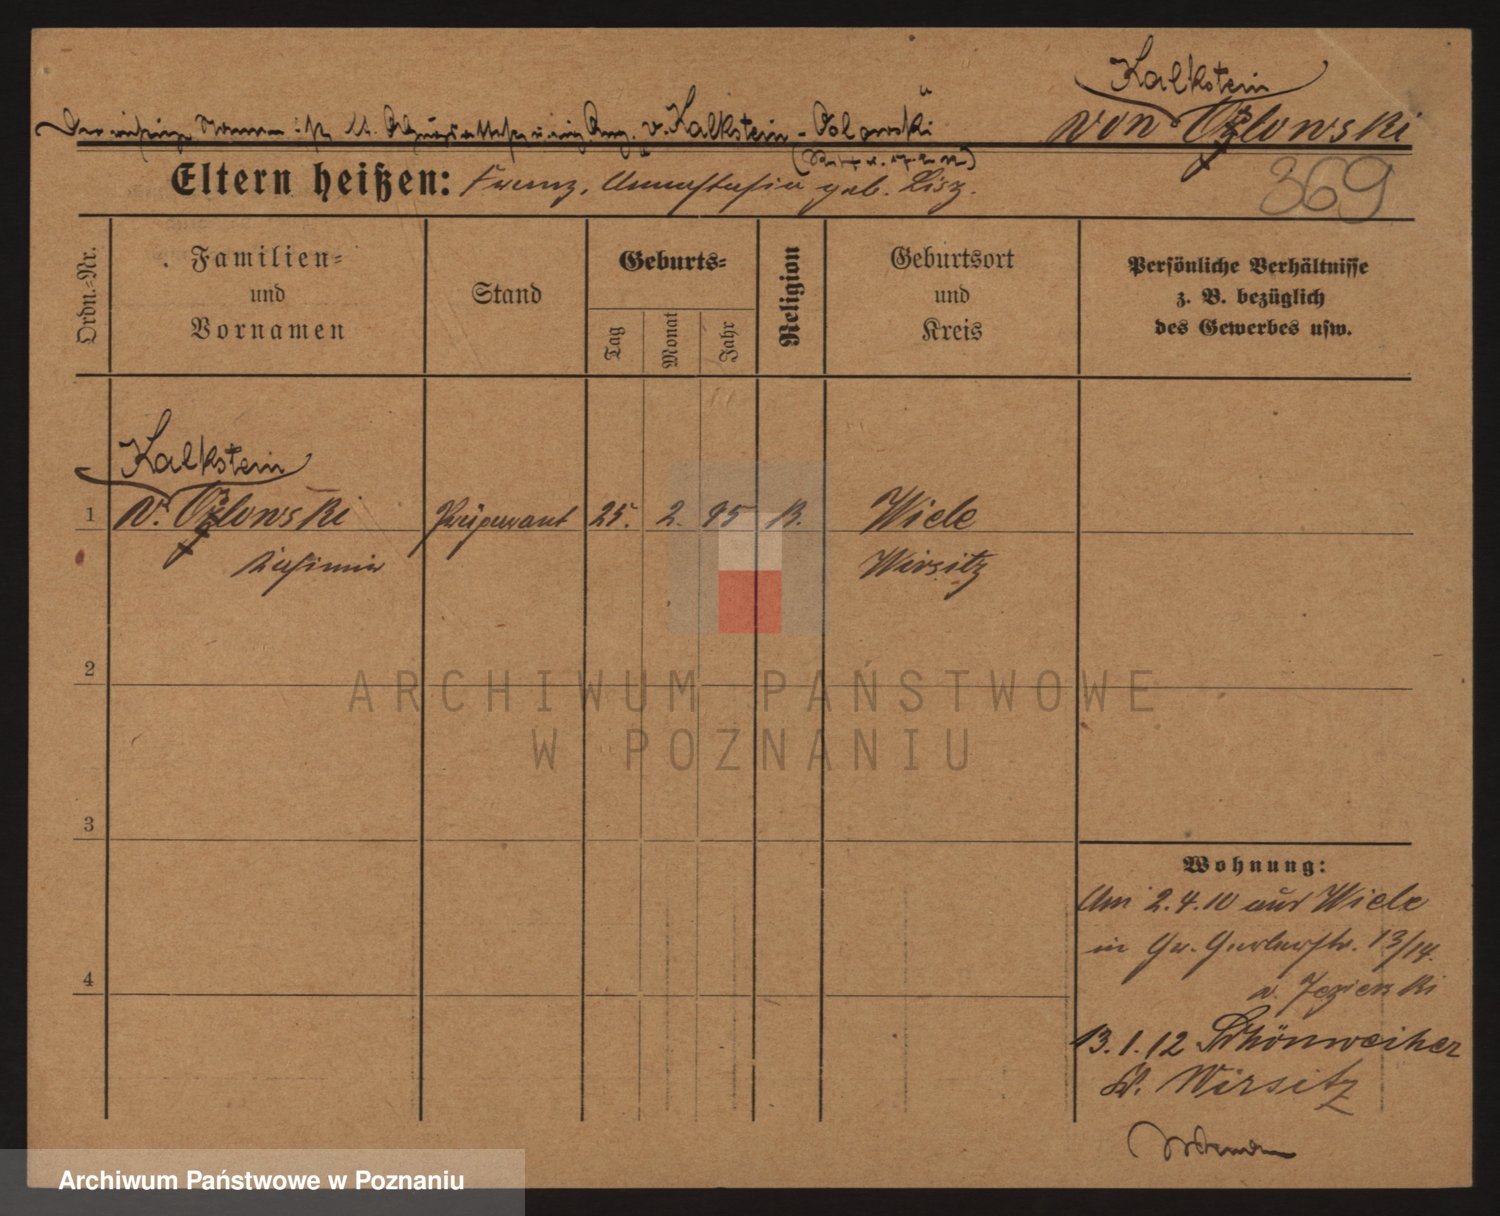 Kalkstein
von Oslowski
v. Kalkstein - Oslowski
369
Eltern heißen: Franz, Anastasia geb. Lisz.
Ordn.-Nr.
Familien-
und
Vornamen
Stand
Geburts-
Tag
Monat
Jahr
Religion
Geburtsort
und
Kreis
Persönliche Verhältnisse
z. B. bezüglich
des Gewerbes usw.
Kalkstein
1 v. Oslowski Präparant 25. 2. 95 Wiele
Kasimir Wirsitz
2
3
4
Wohnung:
Am 2.4.10 aus Wiele
in Gr. Gerberstr. 13/14.
Jezierski
13.1.12 Schönweiher
Kr. Wirsitz
ARCHIWUM PAŃSTWOWE
W POZNANIU
Archiwum Państwowe w Poznaniu